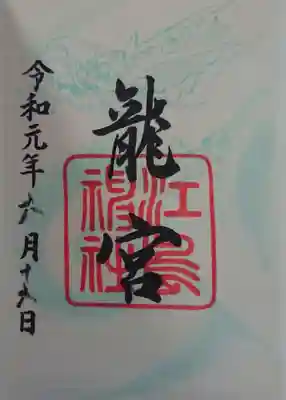 龍宮
江島
神社
令和元年六月十六日